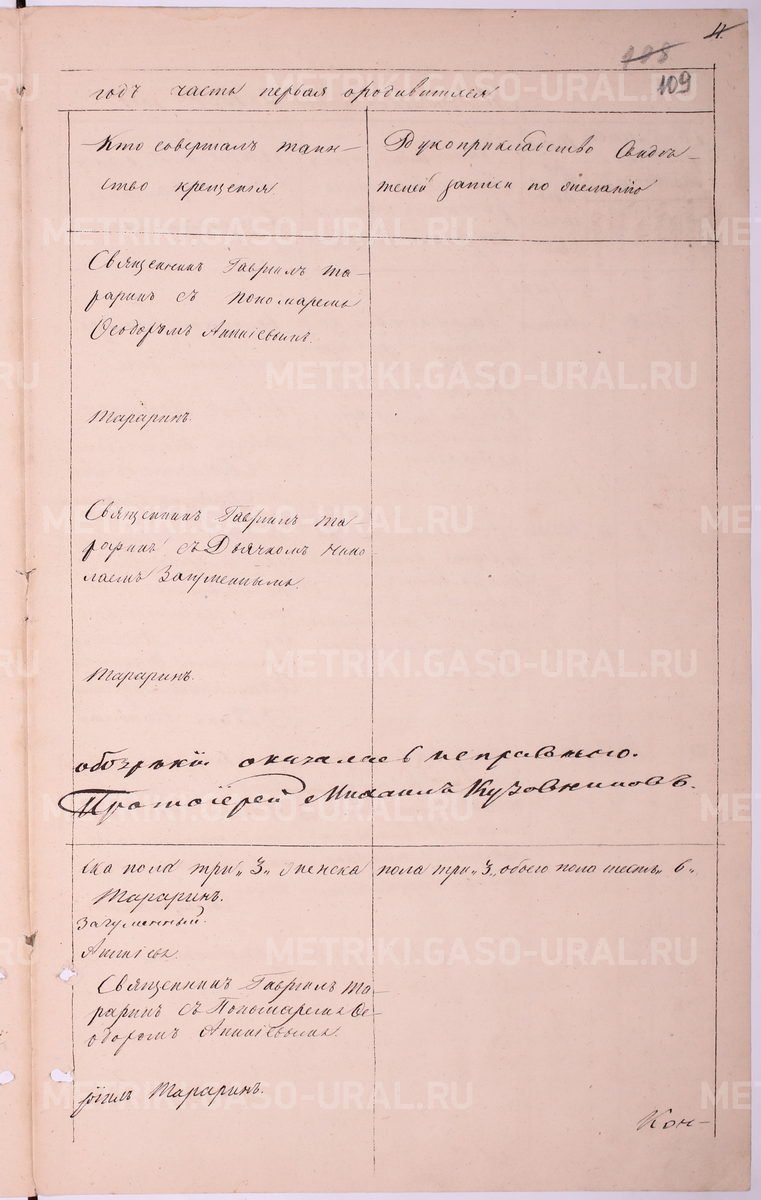 4.
108
109
годъ часть первая о родившихся
Кто совершалъ таин-
ство крещенія
Рукоприкладство Свидѣ-
телей записи по желанію
Священникъ Гавріилъ Та-
раринъ съ пономаремъ
Ѳеодоромъ Анніевымъ.
Тараринъ.
Священникъ Гавріилъ Та-
раринъ съ Дьячкомъ Нико-
лаемъ Загуменнымъ.
Тараринъ.
обозрѣніи оказалась исправною.
Протоіерей Михаилъ Кузовниковъ.
ска пола три „3„ женска
пола три „3„ обоего пола шесть 6„
Тараринъ.
Загуменный.
Анніевъ
Священникъ Гавріилъ Та-
раринъ съ Пономаремъ Ѳе-
одоромъ Анніевымъ.
ріилъ Тараринъ.
Кон-
METRIKI.GASO-URAL.RU